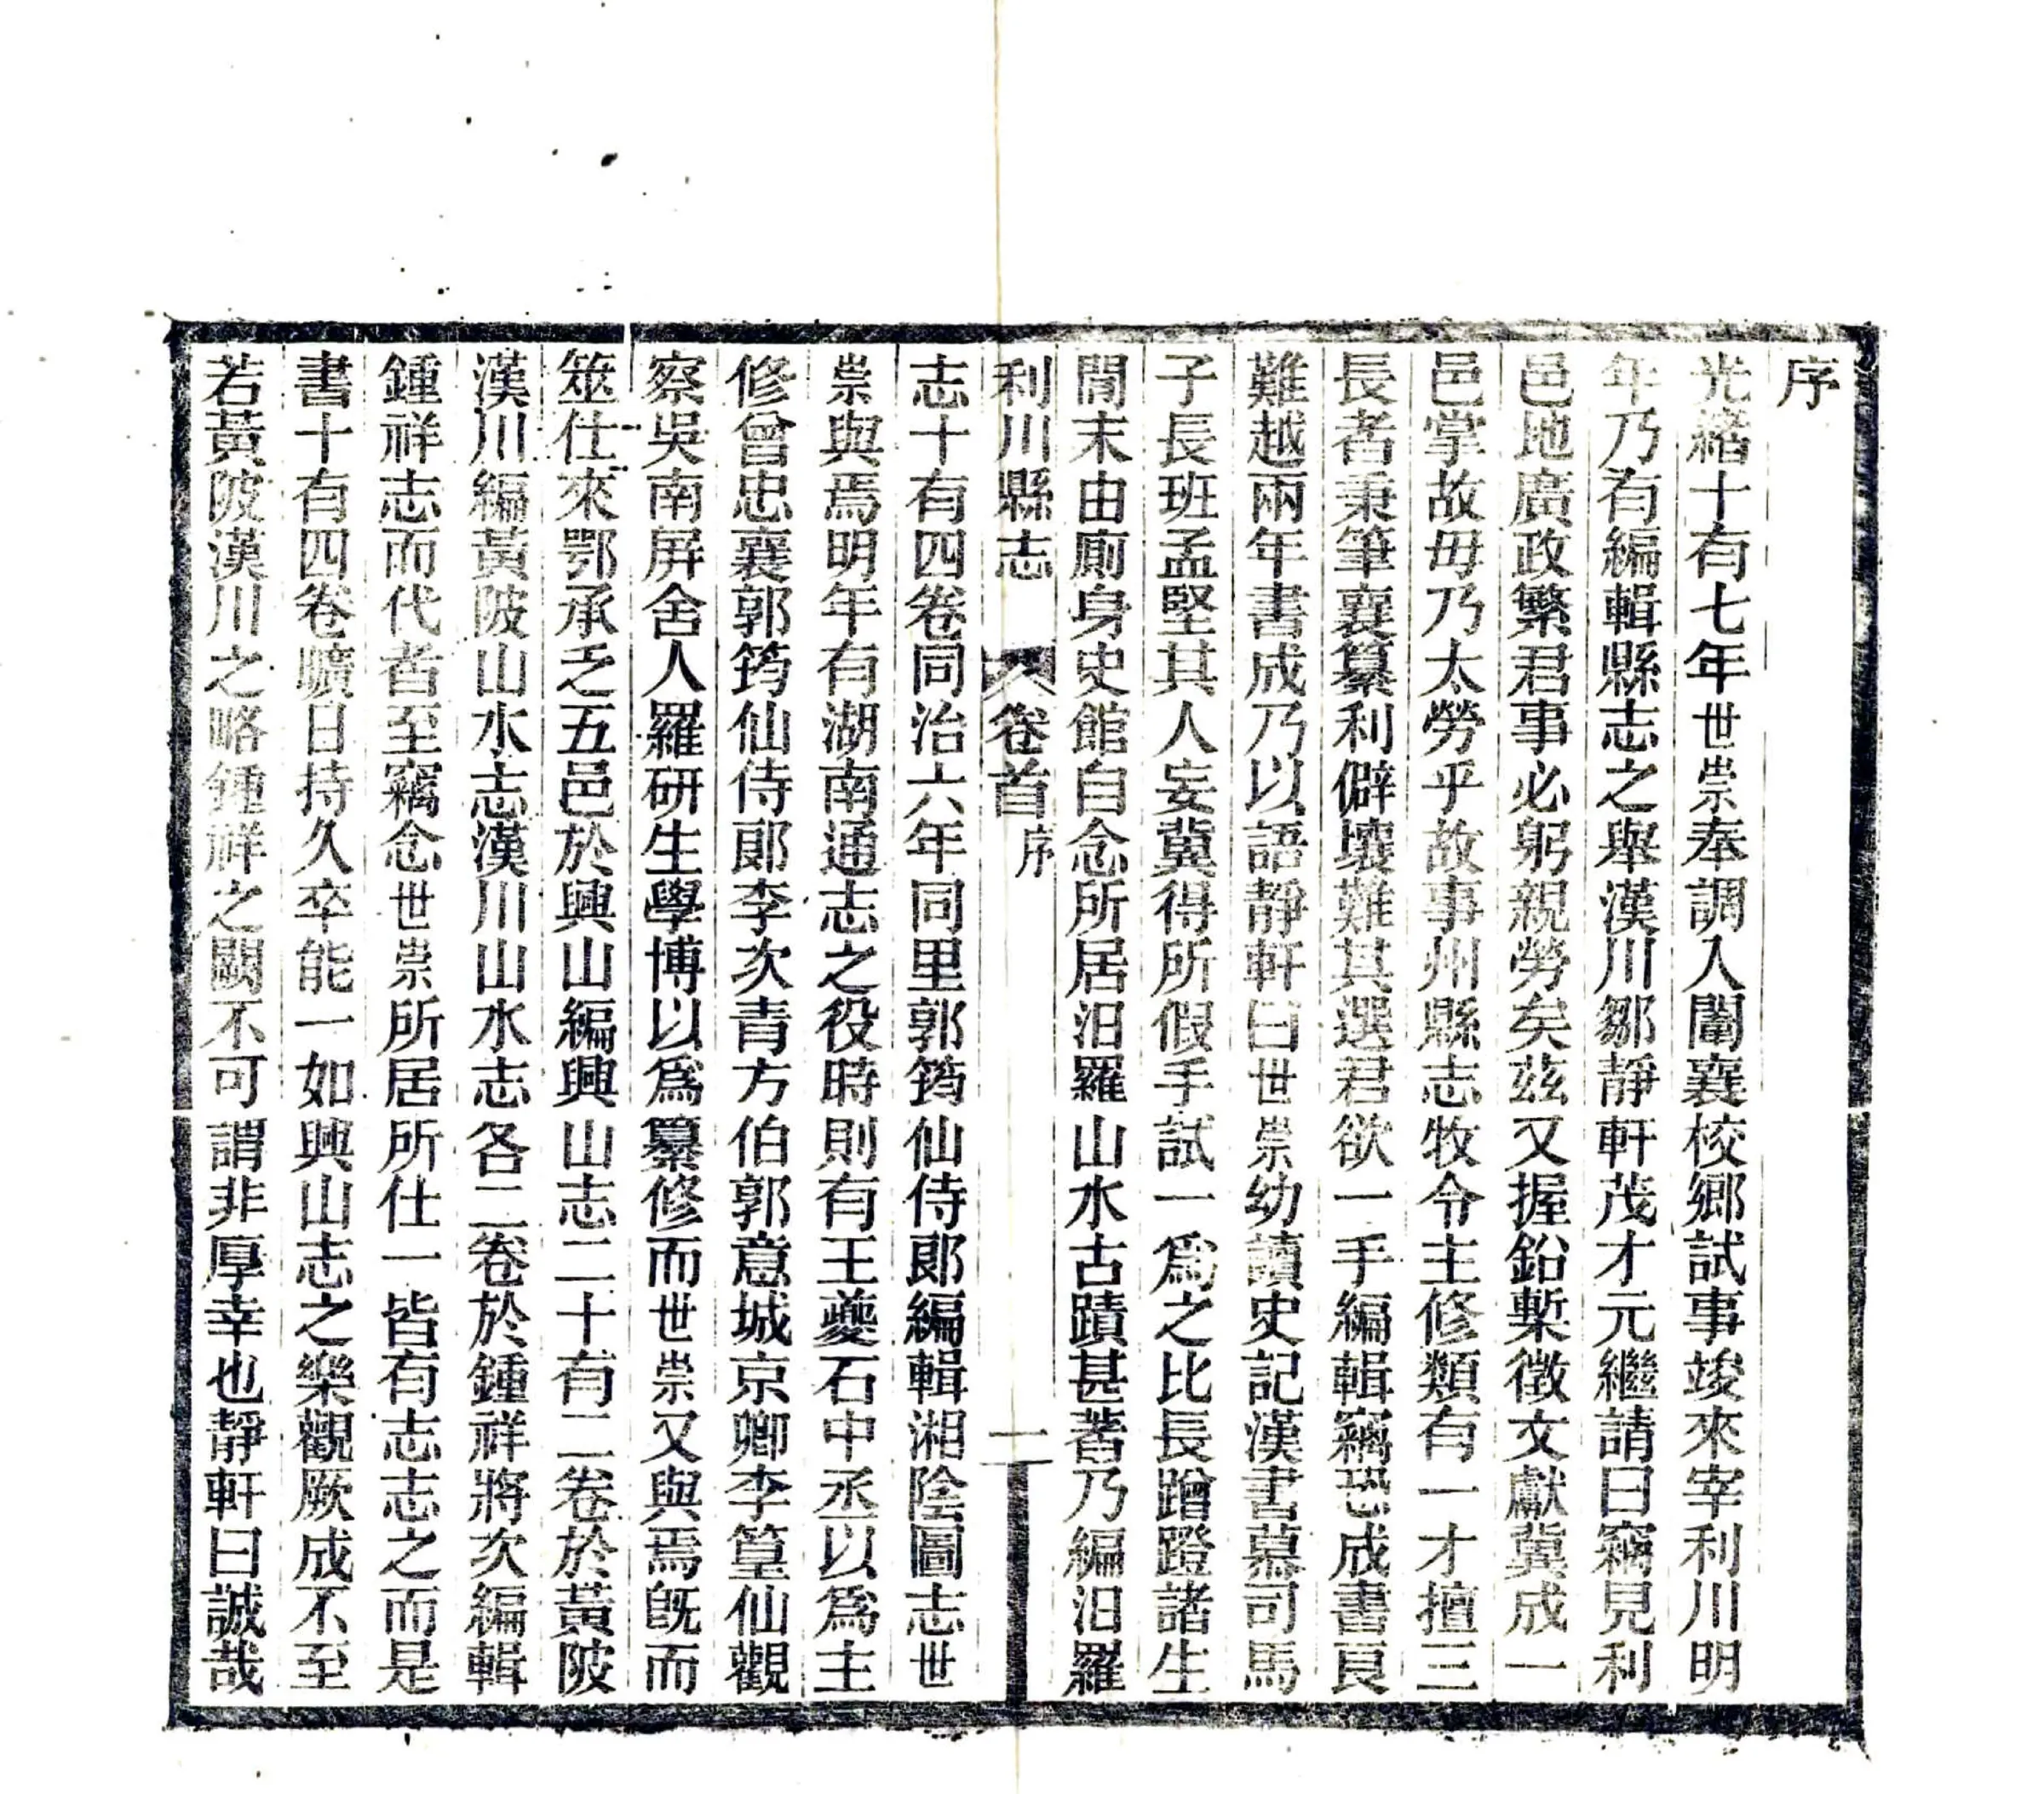 序
光緒十有七年世崇奉調入闈襄校鄉試事竣來宰利川明
年乃有編輯縣志之舉漢川鄒靜軒茂才元繼請曰竊見利
邑地廣政繁君事必躬親勞矣茲又握鉛槧徵文獻冀成一
邑掌故毋乃太勞乎故事州縣志牧令主修類有一才擅三
長者秉筆襄纂利僻壤難其選君欲一手編輯竊恐成書良
難越兩年書成乃以語靜軒曰世崇幼讀史記漢書慕司馬
子長班孟堅其人妄冀得所假手試一爲之比長蹭蹬諸生
閒末由廁身史館自念所居汨羅山水古蹟甚著乃編汨羅
利川縣志 卷首 序 一
志十有四卷同治六年同里郭筠仙侍郎編輯湘陰圖志世
崇與焉明年有湖南通志之役時則有王夔石中丞以爲主
修曾忠襄郭筠仙侍郎李次青方伯郭意城京卿李篁仙觀
察吳南屏舍人羅研生學博以爲纂修而世崇又與焉旣而
筮仕來鄂承乏五邑於興山編興山志二十有二卷於黃陂
漢川編黃陂山水志漢川山水志各二卷於鍾祥將次編輯
鍾祥志而代者至竊念世崇所居所仕一皆有志志之而是
書十有四卷曠日持久卒能一如興山志之樂觀厥成不至
若黃陂漢川之略鍾祥之闕不可謂非厚幸也靜軒曰誠哉